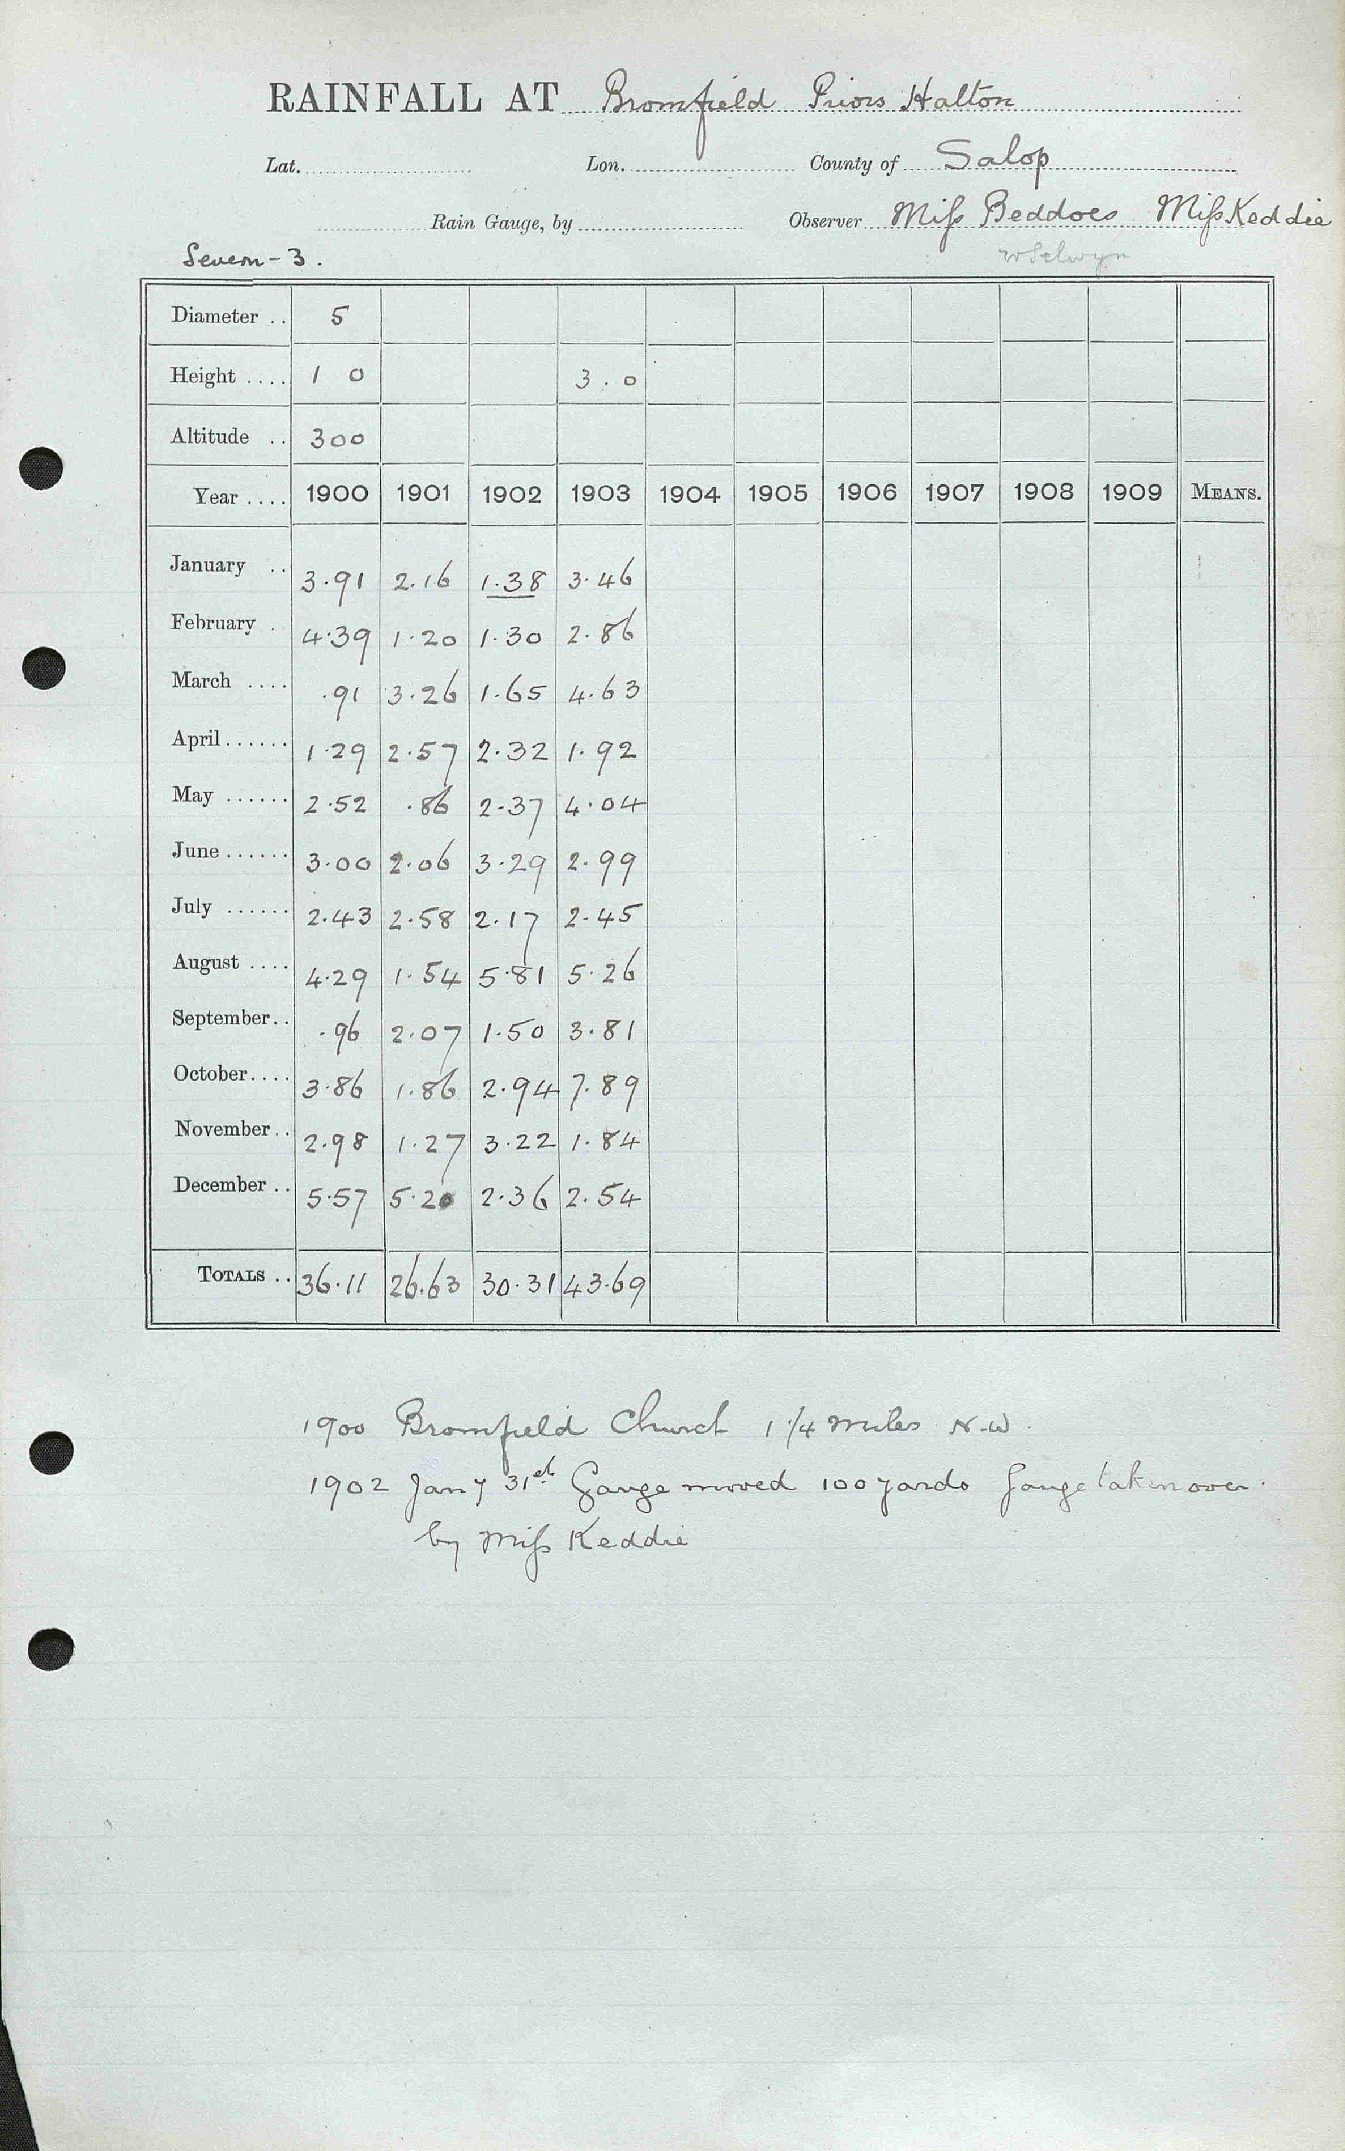 RAINFALL AT Bromfield Priors Halton
Lat. Lon. County of Salop
Rain Gauge, by Observer Miss Beddoes Miss Keddie
Severn - 3. W Selwyn
Diameter .. 5
Height .... 1 0 3.0
Altitude .. 300
Year .... 1900 1901 1902 1903 1904 1905 1906 1907 1908 1909 MEANS.
January .. 3.91 2.16 1.38 3.46
February . 4.39 1.20 1.30 2.86
March .... .91 3.26 1.65 4.63
April ...... 1.29 2.57 2.32 1.92
May ...... 2.52 .86 2.37 4.04
June ...... 3.00 2.06 3.29 2.99
July ...... 2.43 2.58 2.17 2.45
August .... 4.29 1.54 5.81 5.26
September.. .96 2.07 1.50 3.81
October.... 3.86 1.86 2.94 7.89
November.. 2.98 1.27 3.22 1.84
December .. 5.57 5.20 2.36 2.54
TOTALS .. 36.11 26.63 30.31 43.69
1900 Bromfield Church 1 1/4 miles N-W.
1902 Jany 31st Gauge moved 100 yards Gauge taken over
by Miss Keddie